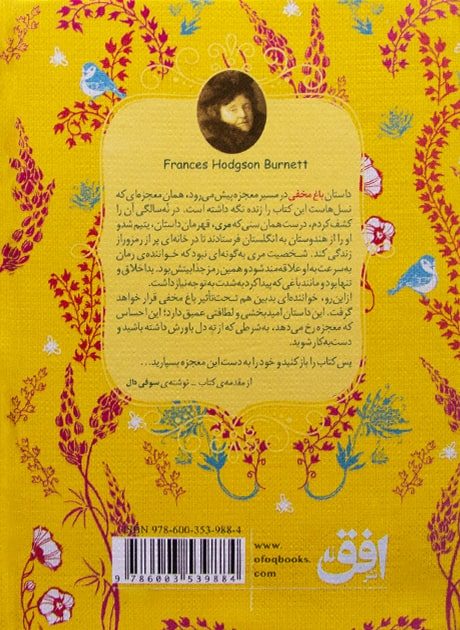 Frances Hodgson Burnett
داستان باغ مخفی در مسیر معجزه پیش می‌رود، همان معجزه‌ای که
نسل‌هاست این کتاب را زنده نگه داشته است. در نُه‌سالگی آن را
کشف کردم، درست همان سنی که مری، قهرمان داستان، یتیم شد و
او را از هندوستان به انگلستان فرستادند تا در خانه‌ای پر از رمزوراز
زندگی کند. شخصیت مری به‌گونه‌ای نبود که خواننده‌ی رمان
به‌سرعت به او علاقه‌مند شود و همین رمز جذابیتش بود. بداخلاق و
تنها بود و مانند باغی که پیدا کرد به‌شدت به توجه نیاز داشت.
ازاین‌رو، خواننده‌ای بدبین هم تحت‌تأثیر باغ مخفی قرار خواهد
گرفت. این داستان امیدبخشی و لطافتی عمیق دارد؛ این احساس
که معجزه رخ می‌دهد، به‌شرطی که از ته دل باورش داشته باشید و
دست‌به‌کار شوید.
پس کتاب را باز کنید و خود را به دست این معجزه بسپارید...
از مقدمه‌ی کتاب _ نوشته‌ی سوفی دال
ISBN 978-600-353-988-4
9 786003 539884
www.
ofoqbooks.
com
افق